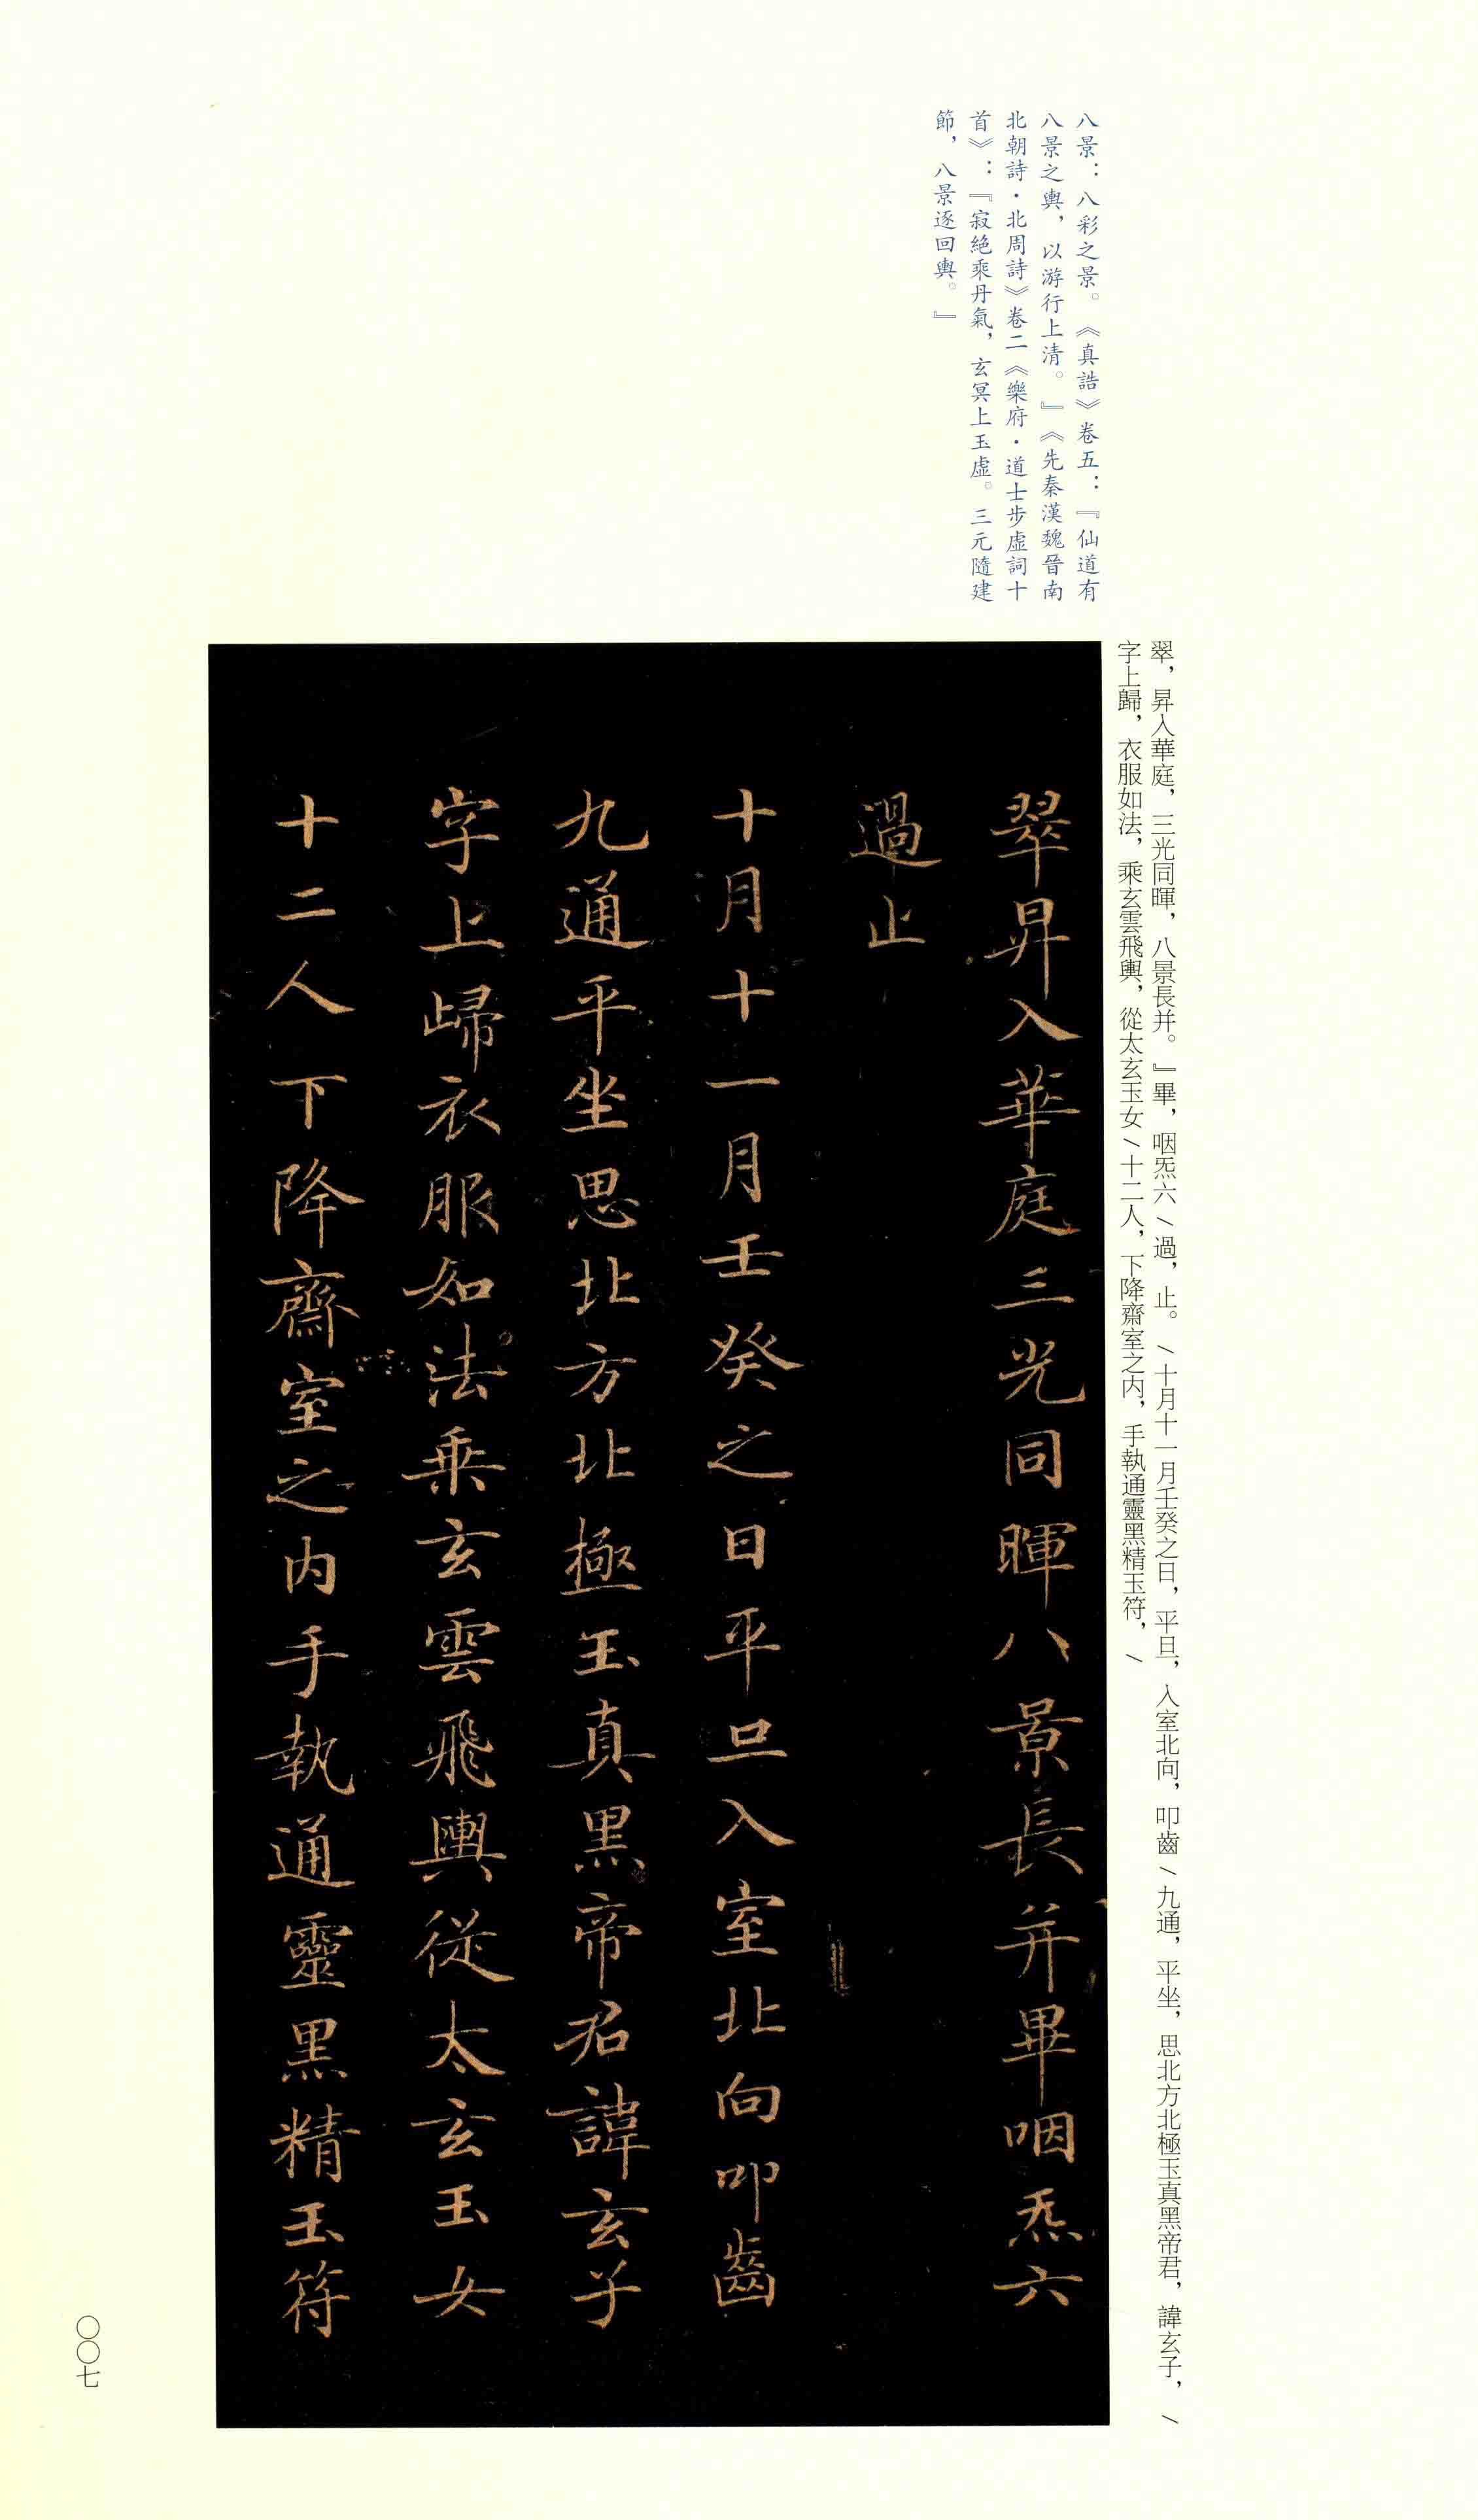 八景：八彩之景。《真誥》卷五：『仙道有
八景之輿，以游行上清。』《先秦漢魏晉南
北朝詩·北周詩》卷二《樂府·道士步虛詞十
首》：『寂絶乘丹氣，玄冥上玉虛。三元隨建
節，八景逐回輿。』
翠，昇入華庭，三光同暉，八景長并。』畢，咽炁六/過，止。/十月十一月壬癸之日，平旦，入室北向，叩齒/九通，平坐，思北方北極玉真黑帝君，諱玄子，/
字上歸，衣服如法，乘玄雲飛輿，從太玄玉女/十二人，下降齋室之内，手執通靈黑精玉符，/
翠昇入華庭三光同暉八景長并畢咽炁六
過止
十月十一月壬癸之日平旦入室北向叩齒
九通平坐思北方北極玉真黑帝君諱玄子
字上歸衣服如法乘玄雲飛輿從太玄玉女
十二人下降齋室之内手執通靈黑精玉符
〇〇七